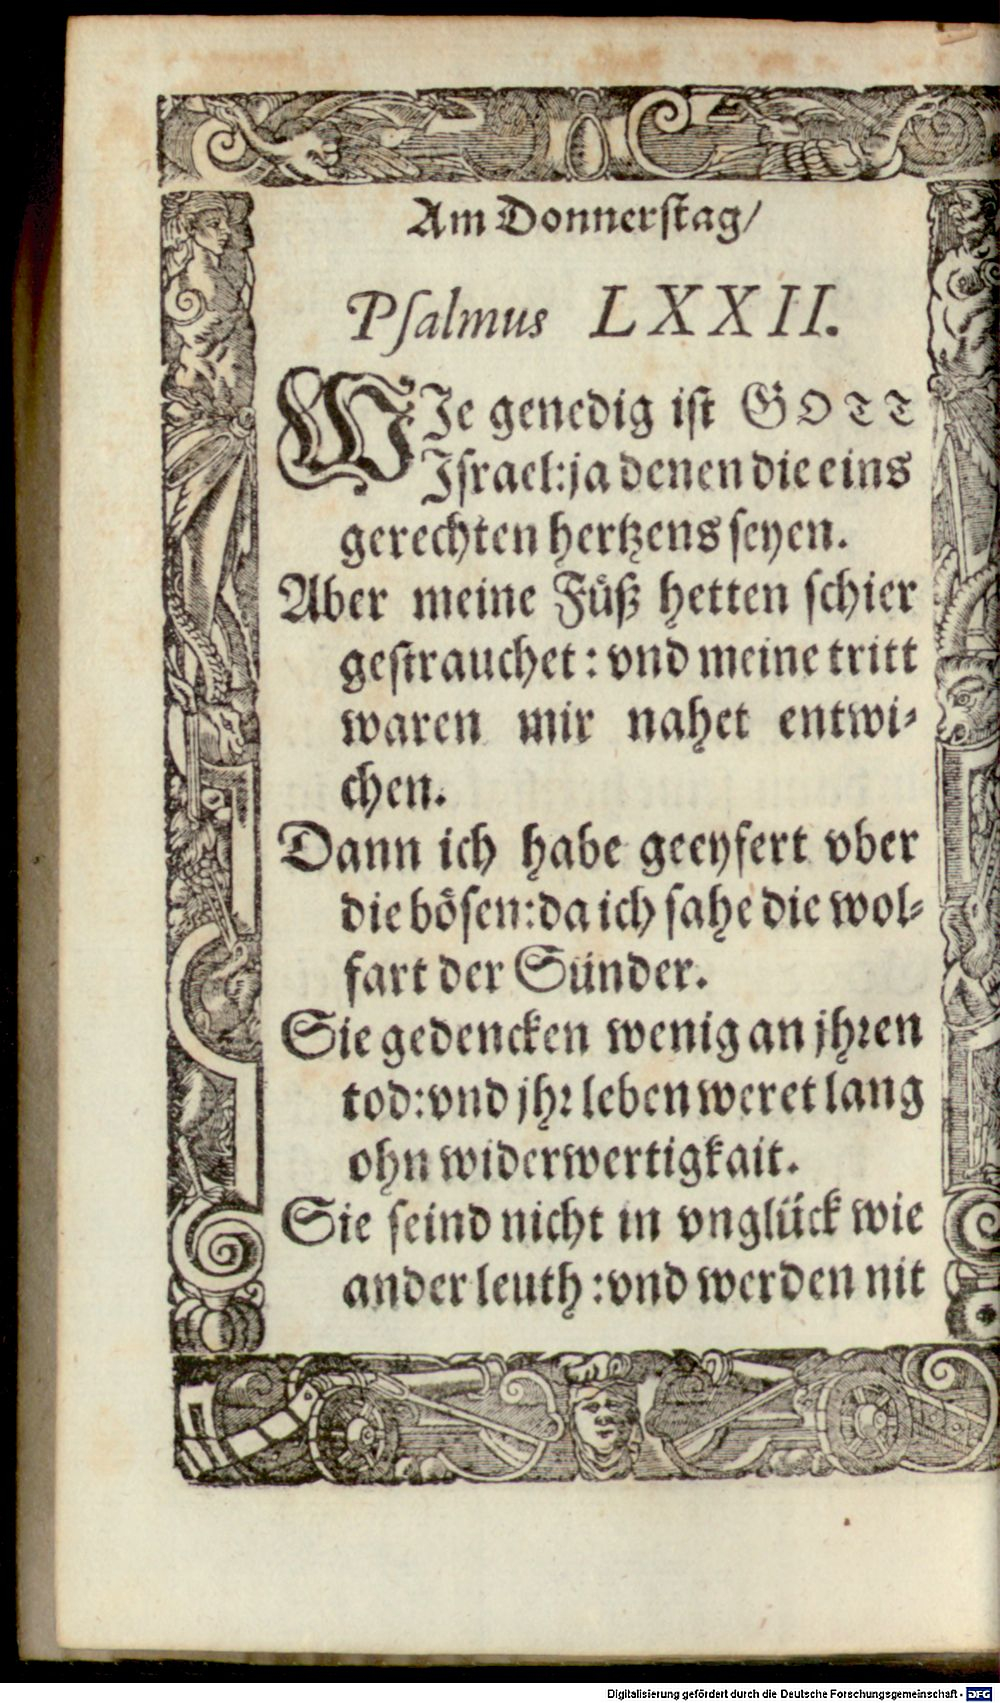 Am Donnerſtag/
Pſalmus LXXII.
WJe genedig iſt GOTT
Jſrael: ja denen die eins
gerechten hertzens ſeyen.
Aber meine Fuͤß hetten ſchier
geſtrauchet: vnd meine tritt
waren mir nahet entwi⸗
chen.
Dann ich habe geeyfert vber
die boͤſen: da ich ſahe die wol⸗
fart der Sünder.
Sie gedencken wenig an jhꝛen
tod: vnd jhꝛ leben weret lang
ohn widerwertigkait.
Sie ſeind nicht in vnglück wie
ander leuth: vnd werden nit
Digitalisierung gefördert durch die Deutsche Forschungsgemeinschaft - DFG